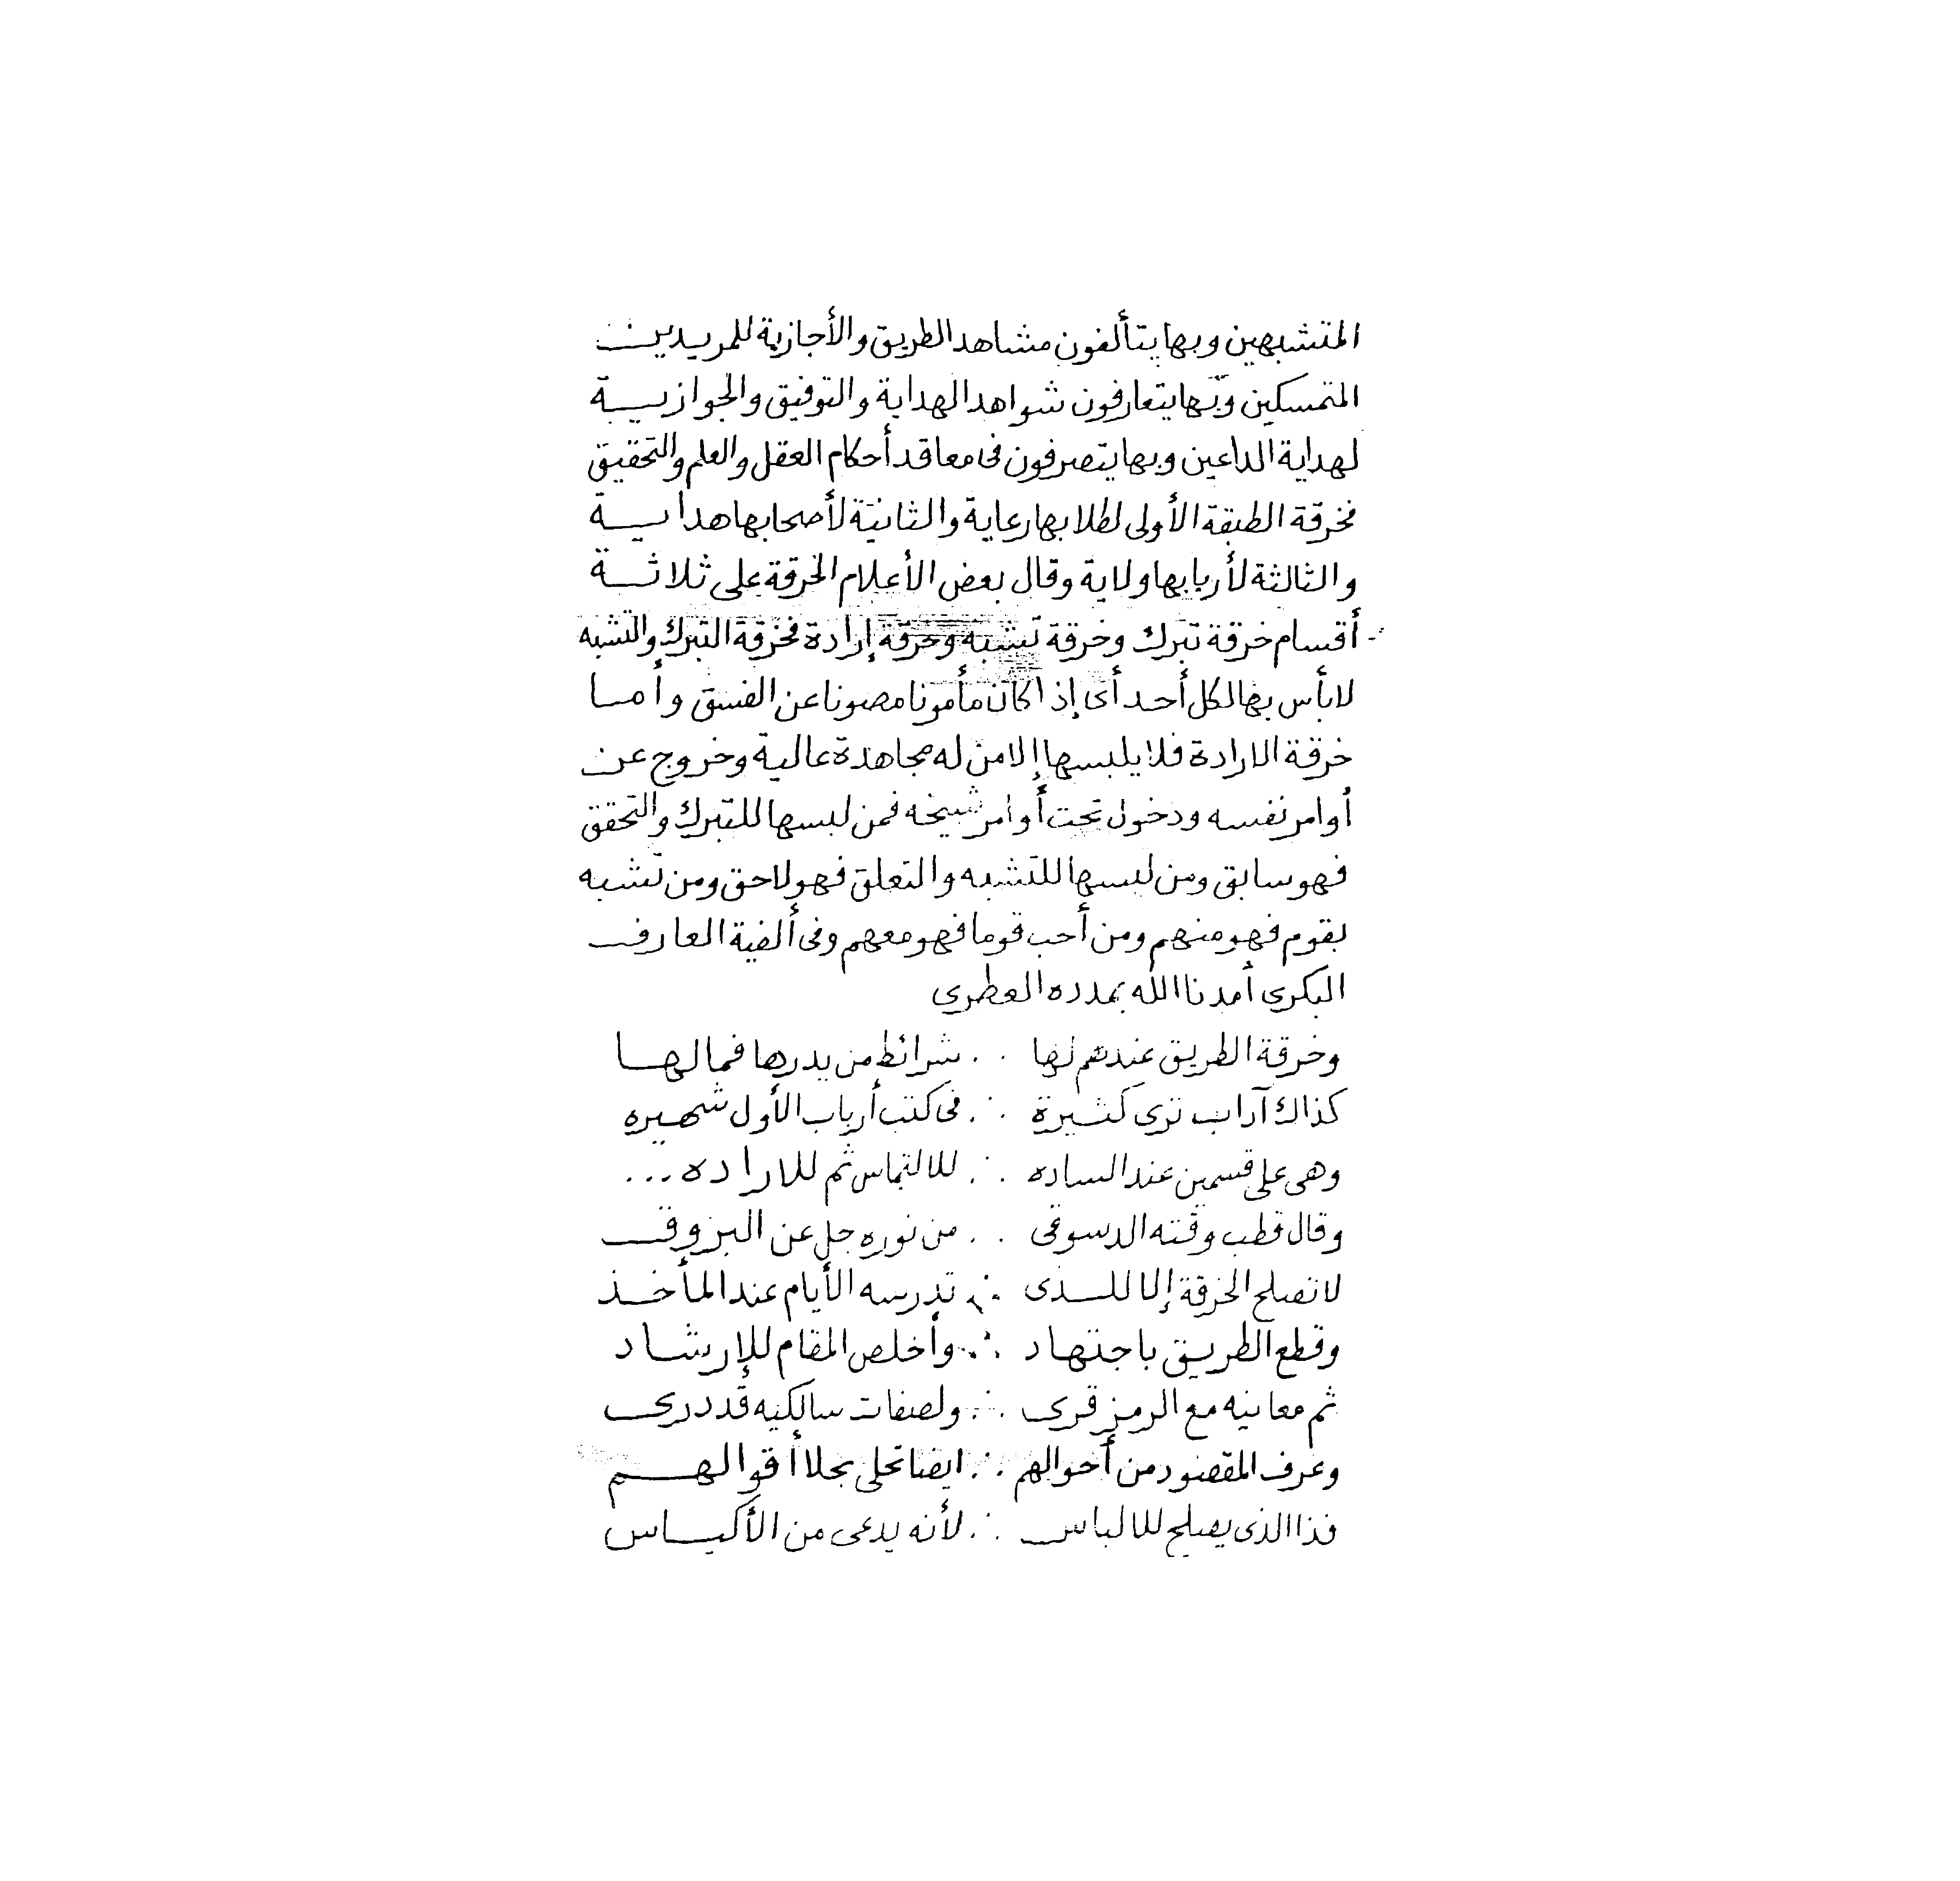 المتشبهين وبها يتألفون مشاهد الطريق والأجازية للمريدين
المتمسكين وبها يتعارفون شواهد الهداية والتوفيق والجوازية
لهداية الداعين وبها يتصرفون فى معاقد أحكام العقل والعلم والتحقيق
فخرقة الطبقة الأولى لطلابها رعاية والثانية لأصحابها هداية
والثالثة لأربابها ولاية وقال بعض الأعلام الخرقة على ثلاثة
أقسام خرقة تبرك وخرقة تشبه وخرقة إرادة فخرقة التبرك والتشبه
لا بأس بها لكل أحد أى إذا كان مأمونا مصونا عن الفسق وأما
خرقة الارادة فلا يلبسها إلا من له مجاهدة عالية وخروج عن
أوامر نفسه ودخول تحت أوامر شيخه فمن لبسها للتبرك والتحقق
فهو سابق ومن لبسها للتشبه والتعلق فهو لاحق ومن تشبه
بقوم فهو منهم ومن أحب قوما فهو معهم وفى ألفية العارف
البكرى أمدنا الله بمدده العطرى
وخرقة الطريق عندهم لها ∴ شرائط من يدرها فما لها
كذاك آداب ترى كثيرة ∴ فى كتب أرباب الأول شهيره
وهى على قسمين عند الساده ∴ للالتماس ثم للاراده ...
وقال قطب وقته الدسوقى ∴ من نوره جل عن البروق
لا تصلح الخرقة إلا للذى ∴ تدرسه الأيام عند المأخذ
وقطع الطريق باجتهاد ∴ وأخلص المقام للإرشاد
ثم معانيه مع الرمز قرى ∴ ولصفات سالكيه قد درى
وعرف المقصود من أحوالهم ∴ ايضا تحلى بحلا أقوالهم
فذا الذى يصلح للالباس ∴ لأنه يدعى من الأكياس